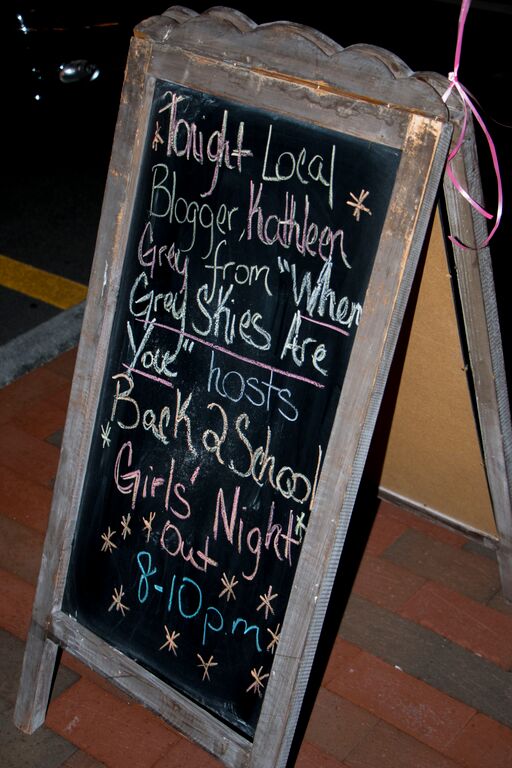 Tonight Local
Blogger, Kathleen
Grey from "When
Grey Skies Are
Blue" hosts
Back 2 School
Girls' Night
out
8-10pm